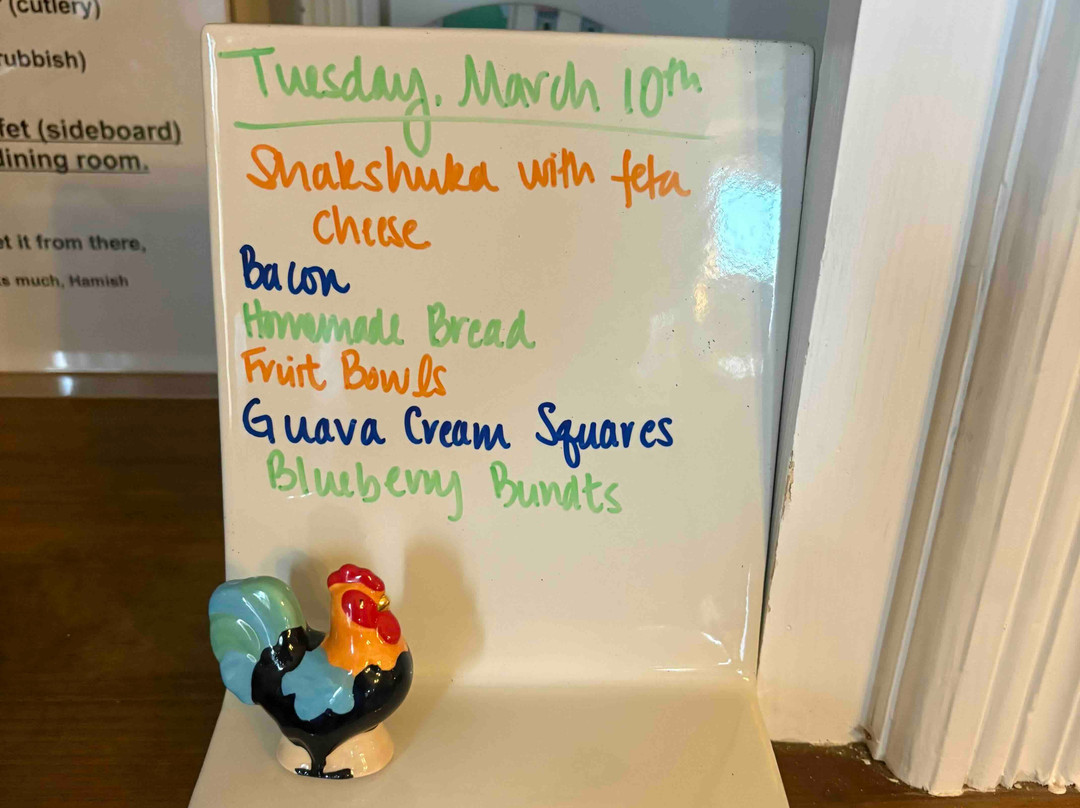 (cutlery)
rubbish)
fet (sideboard)
dining room.
et it from there,
s much, Hamish
Tuesday, March 10th
Shakshuka with feta
cheese
Bacon
Homemade Bread
Fruit Bowls
Guava Cream Squares
Blueberry Bundts